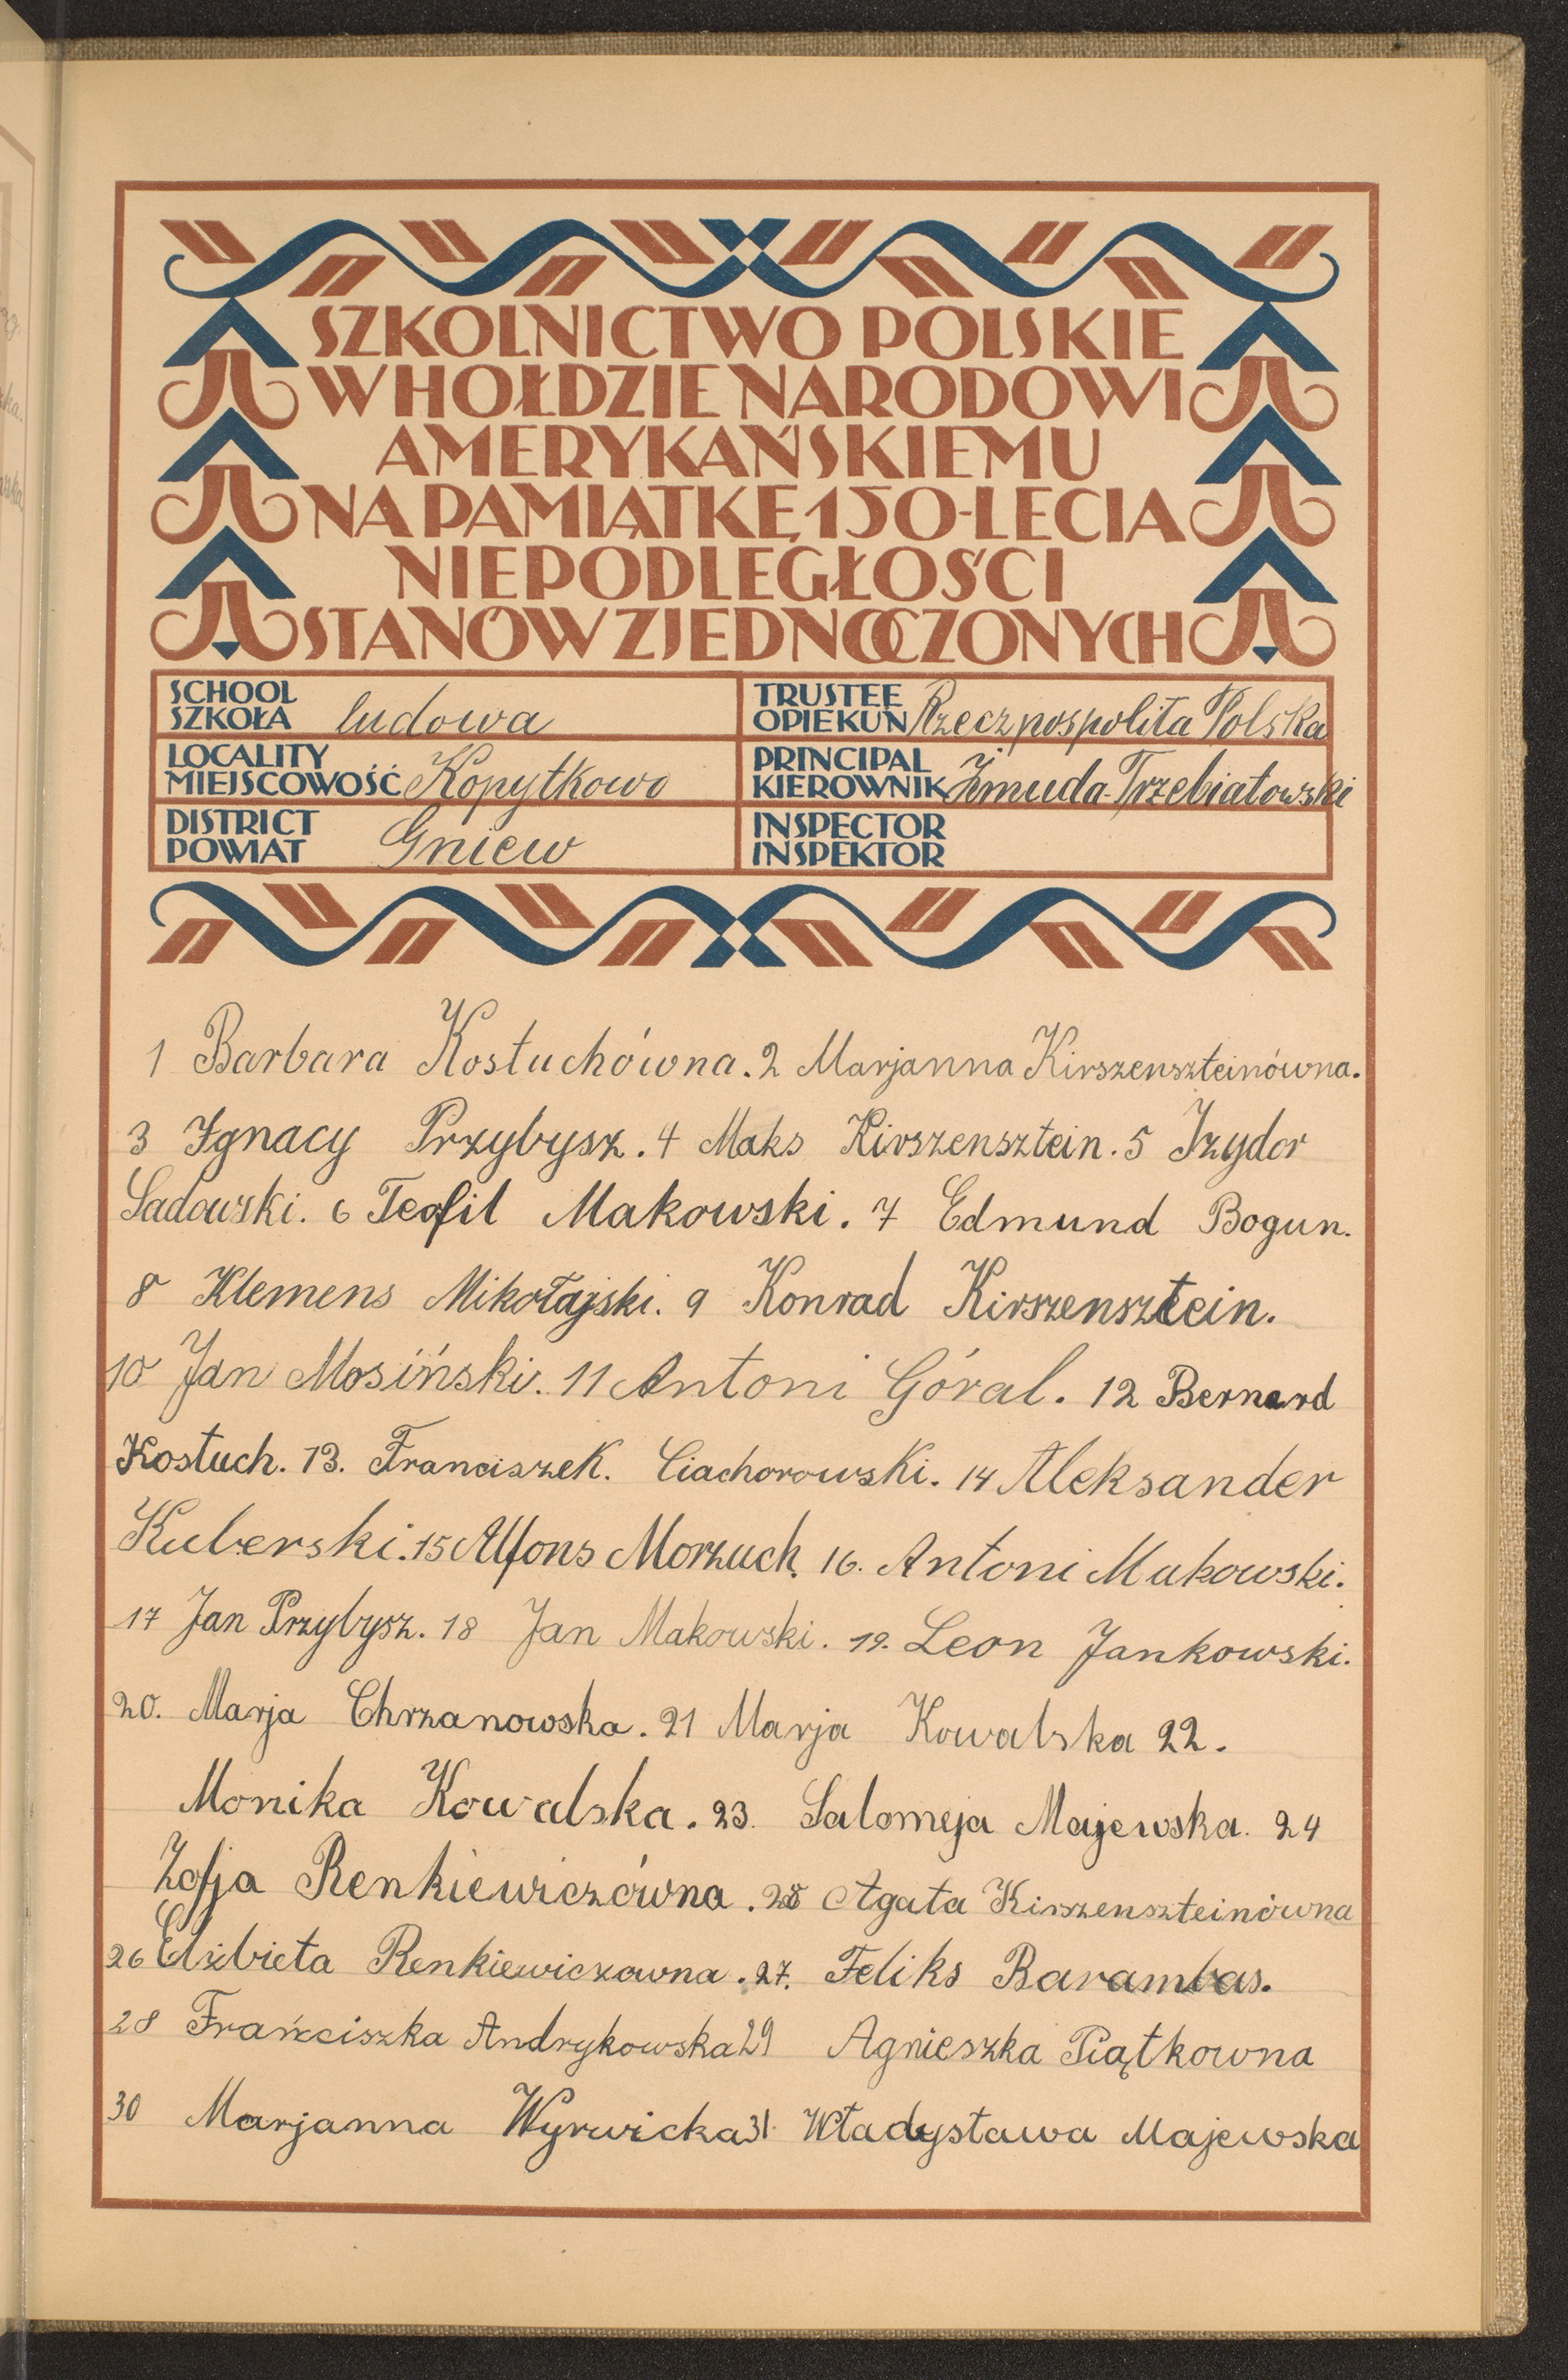 SZKOLNICTWO POLSKIE
W HOŁDZIE NARODOWI
AMERYKAŃSKIEMU
NA PAMIĄTKĘ 150-LECIA
NIEPODLEGŁOŚCI
STANÓW ZJEDNOCZONYCH
SCHOOL
SZKOŁA ludowa
TRUSTEE
OPIEKUN Rzeczpospolita Polska
LOCALITY
MIEJSCOWOŚĆ Kopytkowo
PRINCIPAL
KIEROWNIK Żmuda-Trzebiatowski
DISTRICT
POWIAT Gniew
INSPECTOR
INSPEKTOR
1 Barbara Kostuchówna. 2 Marjanna Kirszenszteinówna.
3 Ignacy Przybysz. 4 Maks Kirszensztein. 5 Izydor
Sadowski. 6 Teofil Makowski. 7 Edmund Bogun.
8 Klemens Mikołajski. 9 Konrad Kirszensztein.
10 Jan Mosiński. 11 Antoni Góral. 12 Bernard
Kostuch. 13. Franciszek. Ciachorowski. 14 Aleksander
Kuberski. 15 Alfons Morzuch. 16. Antoni Makowski.
17 Jan Przybysz. 18 Jan Makowski. 19. Leon Jankowski.
20. Marja Chrzanowska. 21 Marja Kowalska 22.
Monika Kowalska. 23. Salomeja Majewska. 24
Zofja Renkiewiczówna. 25 Agata Kirszenszteinówna
26 Elżbieta Renkiewiczowna. 27. Feliks Barambas.
28 Frańciszka Andrykowska 29 Agnieszka Piątkowna
30 Marjanna Wyrwicka 31. Władysława Majewska